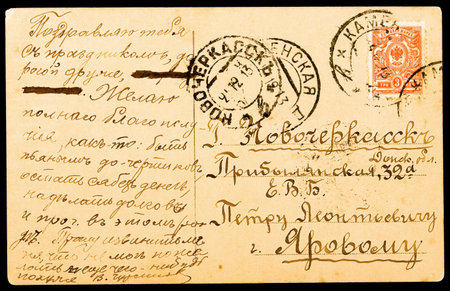 Поздравляю тебя
съ праздникомъ, до
рогой друже,
Желаю
полнаго благополу
чія, какъ-то: быть
пьянымъ до чертиковъ
достать себе денегъ,
надѣлать долговъ
и проч. въ этомъ ро
дѣ. Прошу извинить ме
ня, что не могъ поже
лать тебе чего-нибудь
получше В.
НОВОЧЕРКАССКЪ
12
КАМЕ
КАМ
ТРИ 3 КОП
Г. Новочеркасскъ
Донск. обл.
Прибылянская, 32а
Е. В. Б.
Петру Леонтьевичу
г. Яровому